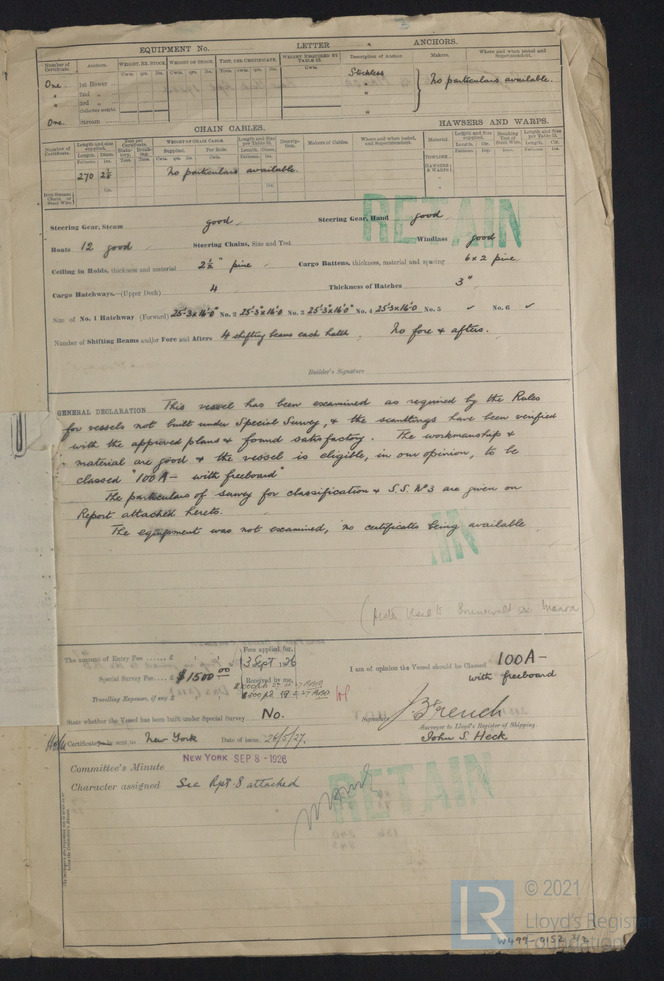 EQUIPMENT No.
LETTER
ANCHORS.
Number of Certificate.
Anchors.
WEIGHT, EX. STOCK.
WEIGHT OF STOCK.
TEST, PER CERTIFICATE.
WEIGHT REQUIRED BY TABLE 22.
Description of Anchor.
Makers.
Where and when tested and Superintendent.
One
1st Bower
Stockless
No particulars available.
2nd "
3rd "
One
Stream
CHAIN CABLES.
HAWSERS AND WARPS.
Number of Certificate.
Length and size supplied.
Test per Certificate.
WEIGHT OF CHAIN CABLE.
Length and Size per Table 22.
Makers of Cables.
Where and when tested, and Superintendent.
Material
270 2 1/8
No particulars available.
HAWSERS & WARPS
Steering Gear, Steam good
Steering Gear, Hand good
Boats 12 good
Steering Chains, Size and Test
Windlass good
Ceiling in Holds, thickness and material 2½" pine
Cargo Battens, thickness, material and spacing 6 x 2 pine
Cargo Hatchways.—(Upper Deck) 4
Thickness of Hatches 3"
Size of No. 1 Hatchway (Forward) 25'-3"x16'-0 No. 2 25'-3"x16'-0 No. 3 25'-3"x16'-0" No. 4 25'-3x16'-0 No. 5 ✓ No. 6 ✓
Number of Shifting Beams and/or Fore and Afters 4 shifting beams each hatch, No fore & afters.
Builder's Signature
GENERAL DECLARATION This vessel has been examined as required by the Rules
for vessels not built under Special Survey, & the scantlings have been verified
with the approved plans & found satisfactory. The workmanship &
material are good & the vessel is eligible, in our opinion, to be
classed "100A- with freeboard"
The particulars of survey for classification & S.S. No 3 are given on
Report attached hereto.
The equipment was not examined, no certificates being available
RETAIN
The amount of Entry Fee ...... £
Fees applied for,
3 Sept 26
Special Survey Fee.... £ $1500.00
Received by me,
Travelling Expenses, if any £
I am of opinion the Vessel should be Classed 100A-
with freeboard
State whether the Vessel has been built under Special Survey No.
Signature J. French
Surveyor to Lloyd's Register of Shipping.
John S. Heck
Certificate to be sent to New York Date of issue 26/5/27.
Committee's Minute NEW YORK SEP 8 - 1926
Character assigned See Rpt. 8 attached
RETAIN
LR
© 2021
Lloyd's Register
Foundation
W499-0152 2/2